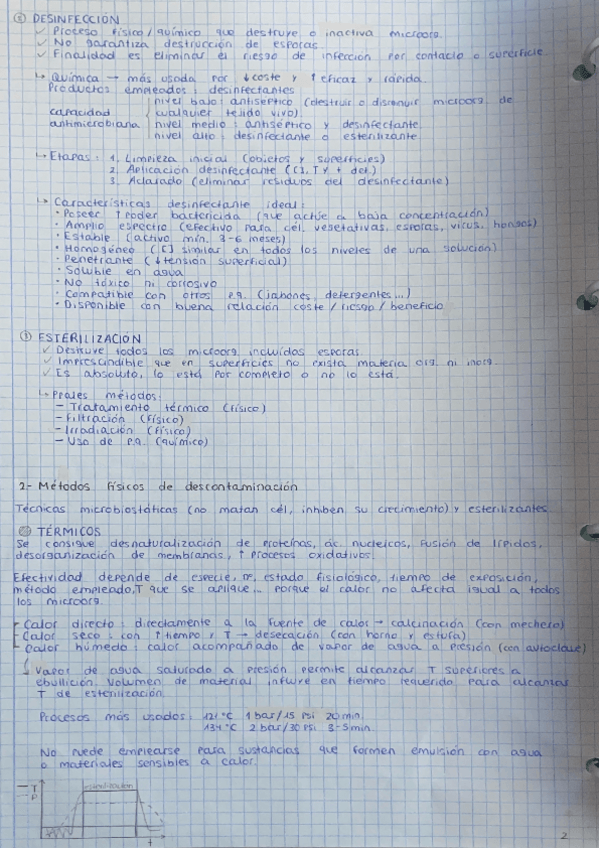 ② DESINFECCIÓN
✓ Proceso físico/químico que destruye o inactiva microorg.
✓ No garantiza destrucción de esporas
✓ Finalidad es eliminar el riesgo de infección por contacto o superficie
↳ Química → más usada por ↓coste y ↑eficaz y rápida.
Productos empleados: desinfectantes
nivel bajo: antiséptico (destruir o disminuir microorg. de
capacidad cualquier tejido vivo)
antimicrobiana nivel medio: antiséptico y desinfectante
nivel alto: desinfectante o esterilizante
↳ Etapas: 1. Limpieza inicial (objetos y superficies)
2. Aplicación desinfectante ([C], T y t det.)
3. Aclarado (eliminar residuos del desinfectante)
↳ Características desinfectante ideal:
· Poseer ↑poder bactericida (que actúe a baja concentración)
· Amplio espectro (efectivo para cél. vegetativas, esporas, virus, hongos)
· Estable (activo mín. 3-6 meses)
· Homogéneo ([C] similar en todos los niveles de una solución)
· Penetrante (↓tensión superficial)
· Soluble en agua
· No tóxico ni corrosivo
· Compatible con otros p.q. (jabones, detergentes...)
· Disponible con buena relación coste/riesgo/beneficio
③ ESTERILIZACIÓN
✓ Destruye todos los microorg. incluidas esporas
✓ Imprescindible que en superficies no exista materia org. ni inorg.
✓ Es absoluto, lo está por completo o no lo está.
↳ Prales métodos:
– Tratamiento térmico (físico)
– Filtración (físico)
– Irradiación (físico)
– Uso de p.q. (químico)
2- Métodos físicos de descontaminación
Técnicas microbiostáticas (no matan cél, inhiben su crecimiento) y esterilizantes
TÉRMICOS
Se consigue desnaturalización de proteínas, ác. nucleicos, fusión de lípidos,
desorganización de membranas, ↑ procesos oxidativos.
Efectividad depende de especie, nº, estado fisiológico, tiempo de exposición,
método empleado, T que se aplique... porque el calor no afecta igual a todos
los microorg.
Calor directo: directamente a la fuente de calor → calcinación (con mechero)
Calor seco: con ↑tiempo y T → desecación (con horno y estufa)
Calor húmedo: calor acompañado de vapor de agua a presión (con autoclave)
↓ Vapor de agua saturado a presión permite alcanzar T superiores a
ebullición. Volumen de material influye en tiempo requerido para alcanzar
T de esterilización.
Procesos más usados: 121 °C 1 bar/15 psi 20 min.
134 °C 2 bar/30 psi 3-5 min.
No puede emplearse para sustancias que formen emulsión con agua
o materiales sensibles a calor.
— T
--- P
esterilización
t
2